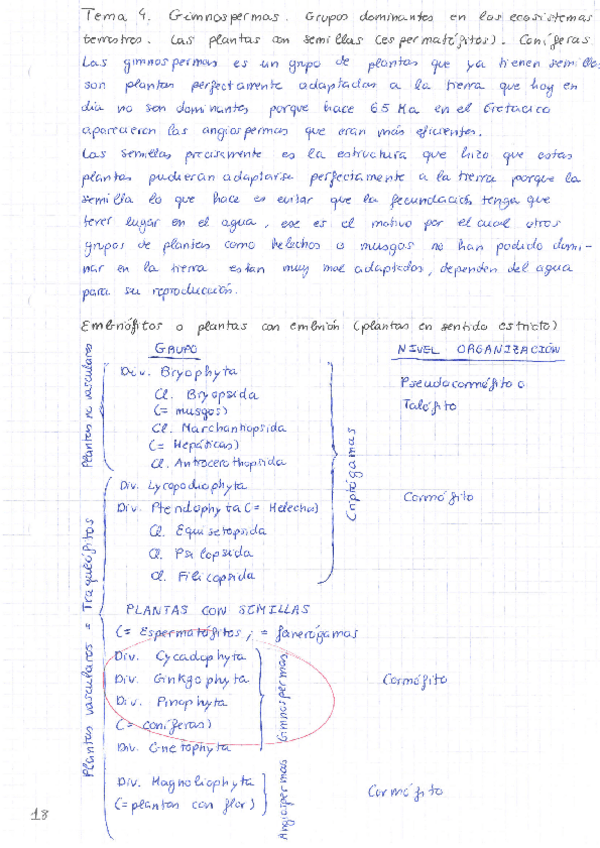 Tema 4. Gimnospermas. Grupos dominantes en los ecosistemas
terrestres. Las plantas con semillas (espermatófitos). Coníferas.
Las gimnospermas es un grupo de plantas que ya tienen semillas
son plantas perfectamente adaptadas a la tierra que hoy en
día no son dominantes porque hace 65 Ma en el Cretácico
aparecieron las angiospermas que eran más eficientes.
Las semillas precisamente es la estructura que hizo que estas
plantas pudieran adaptarse perfectamente a la tierra porque la
semilla lo que hace es evitar que la fecundación tenga que
tener lugar en el agua, ese es el motivo por el cual otros
grupos de plantas como helechos o musgos no han podido domi-
nar en la tierra estan muy mal adaptados, dependen del agua
para su reproducción.
Embriófitos o plantas con embrión (plantas en sentido estricto)
GRUPO NIVEL ORGANIZACIÓN
Plantas no vasculares
Div. Bryophyta
Cl. Bryopsida
(= musgos)
Cl. Marchanhopsida
(= Hepáticas)
Cl. Antocerothopsida
Pseudocormófito o
Talófito
Criptógamas
Plantas vasculares = Traqueófitos
Div. Lycopodiophyta
Div. Pteridophyta (= Helechos)
Cl. Equisetopsida
Cl. Psilopsida
Cl. Filicopsida
Cormófito
PLANTAS CON SEMILLAS
(= Espermatófitos ; = fanerógamas
Div. Cycadophyta
Div. Ginkgophyta
Div. Pinophyta
(= coníferas)
Div. Gnetophyta
Gimnospermas
Cormófito
Div. Magnoliophyta
(= plantas con flor)
Angiospermas
Cormófito
18